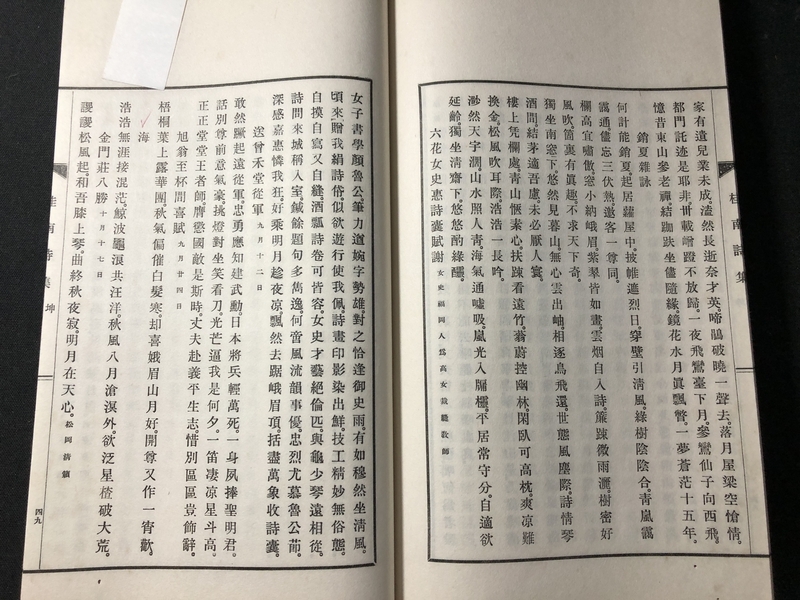 家有遺兒業未成。溘然長逝奈才英。啼鵑破曉一聲去。落月屋梁空愴情。
都門託迹是耶非。卅載嶒蹬不放歸。一夜飛鸞臺下月。參鸞仙子向西飛。
憶昔東山參老禪。結跏趺坐儘隨緣。鏡花水月眞飄瞥。一夢蒼茫十五年。
銷夏雜詠
何計能銷夏。起居蘿屋中。披帷遮烈日。穿壁引清風。綠樹陰陰合。青嵐靄
靄通。儘忘三伏熱。邀客一尊同。
欄高宜嘯傲。窓小納峨眉。紫翠皆如畫。雲烟自入詩。簾疎微雨灑。樹密好
風吹。箇裏有眞趣。不求天下奇。
獨坐南窓下。悠然見暮山。無心雲出岫。相逐鳥飛還。世態風塵際。詩情琴
酒間。結茅遠吾慮。未必厭人寰。
樓上凭欄處。青山愜素心。扶疎看遠竹。蓊蔚控幽林。閑臥可高枕。爽凉難
換金。松風吹耳際。浩浩一長吟。
渺然天宇濶。山水照人青。海氣通噓吸。嵐光入牖櫺。平居常守分。自適欲
延齡。獨坐清齋下。悠悠酌綠醽。
六花女史惠詩嚢賦謝 女史福岡人爲高女裁縫教師
桂南詩集
女子書學顏魯公。筆力遒婉字勢雄。對之恰逢御史雨。有如穆然坐清風。
頃來贈我絹詩帒。似欲遊行使我佩。詩畫印影染出鮮。技工精妙無俗態。
自摸自寫又自縫。酒瓢詩卷可皆容。女史才藝絕倫匹。與龜少琴遠相從。
詩問來城稱入室。鍼餘題句多雋逸。何啻風流韻事優。忠烈尤慕魯公莭。
深感嘉惠憐我狂。好乘明月趁夜凉。飄然去踞峨眉頂。括盡萬象收詩嚢。
送曾禾堂從軍 九月十二日
敢然蹶起遠從軍。忠勇應知建武勳。日本將兵輕萬死。一身夙捧聖明君。
話別尊前意氣豪。挑燈對坐笑看刀。光芒逼我是何夕。一笛凄凉星斗高。
正正堂堂王者師。膺懲國敵是斯時。丈夫赴義平生志。惜別區區豈飾辭。
旭翁至杯間喜賦 九月廿四日
梧桐葉上露華團。秋氣偏催白髮寒。却喜娥眉山月好。開尊又作一宵歡。
海
浩浩無涯接混茫。鯨波颺浪共汪洋。秋風八月滄溟外。欲泛星槎破大荒。
金門莊八勝 十月十七日
謖謖松風起。和吾膝上琴。曲終秋夜寂。明月在天心。 松岡清籟
桂南詩集 坤
四九